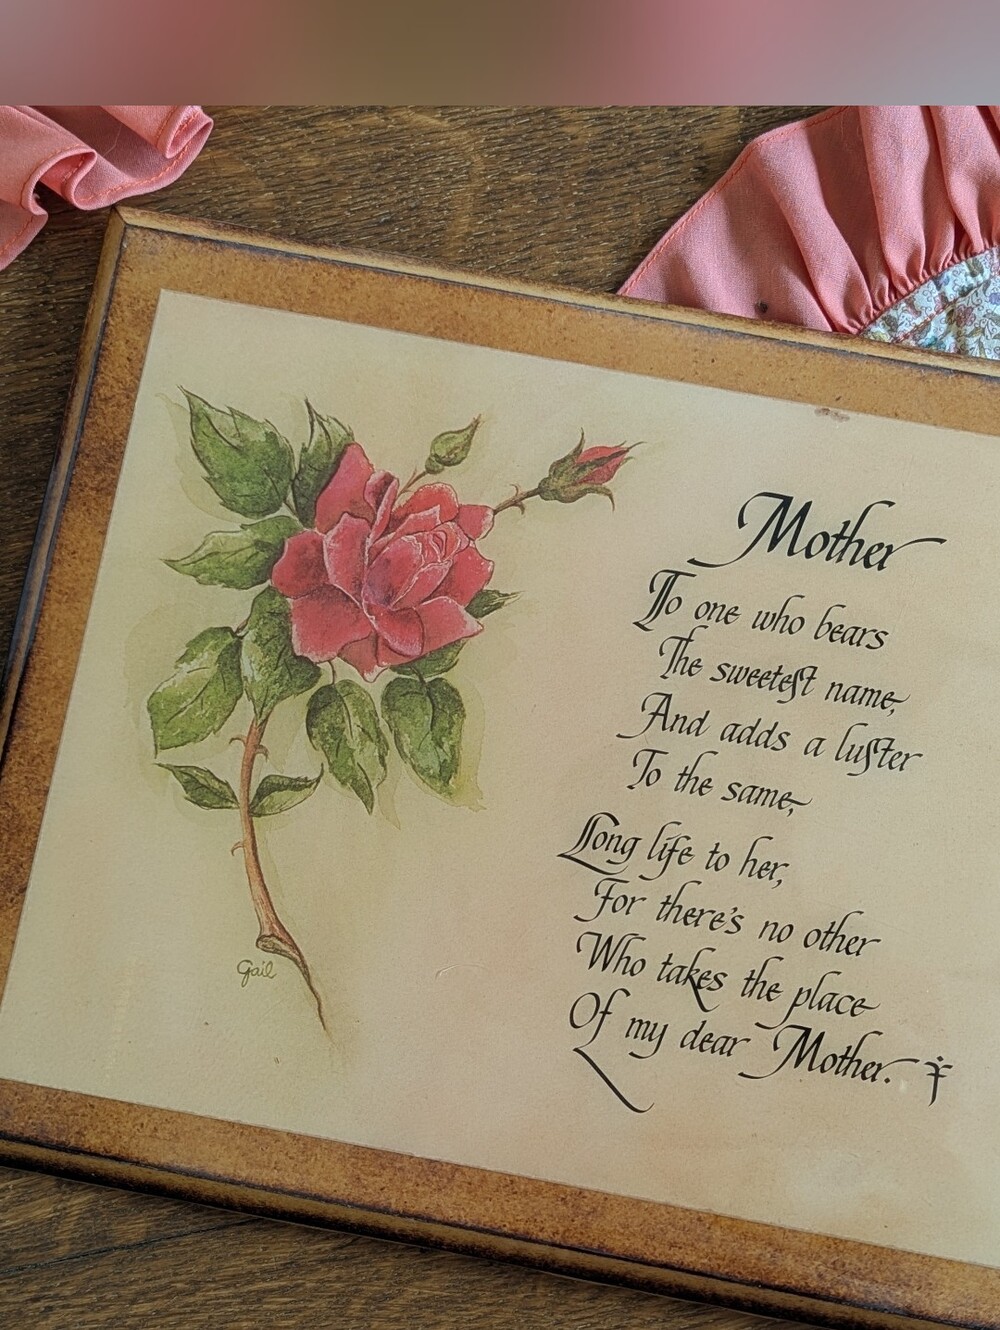 Mother
To one who bears
The sweetest name,
And adds a luster
To the same,
Long life to her,
For there's no other
Who takes the place
Of my dear Mother.
Gail